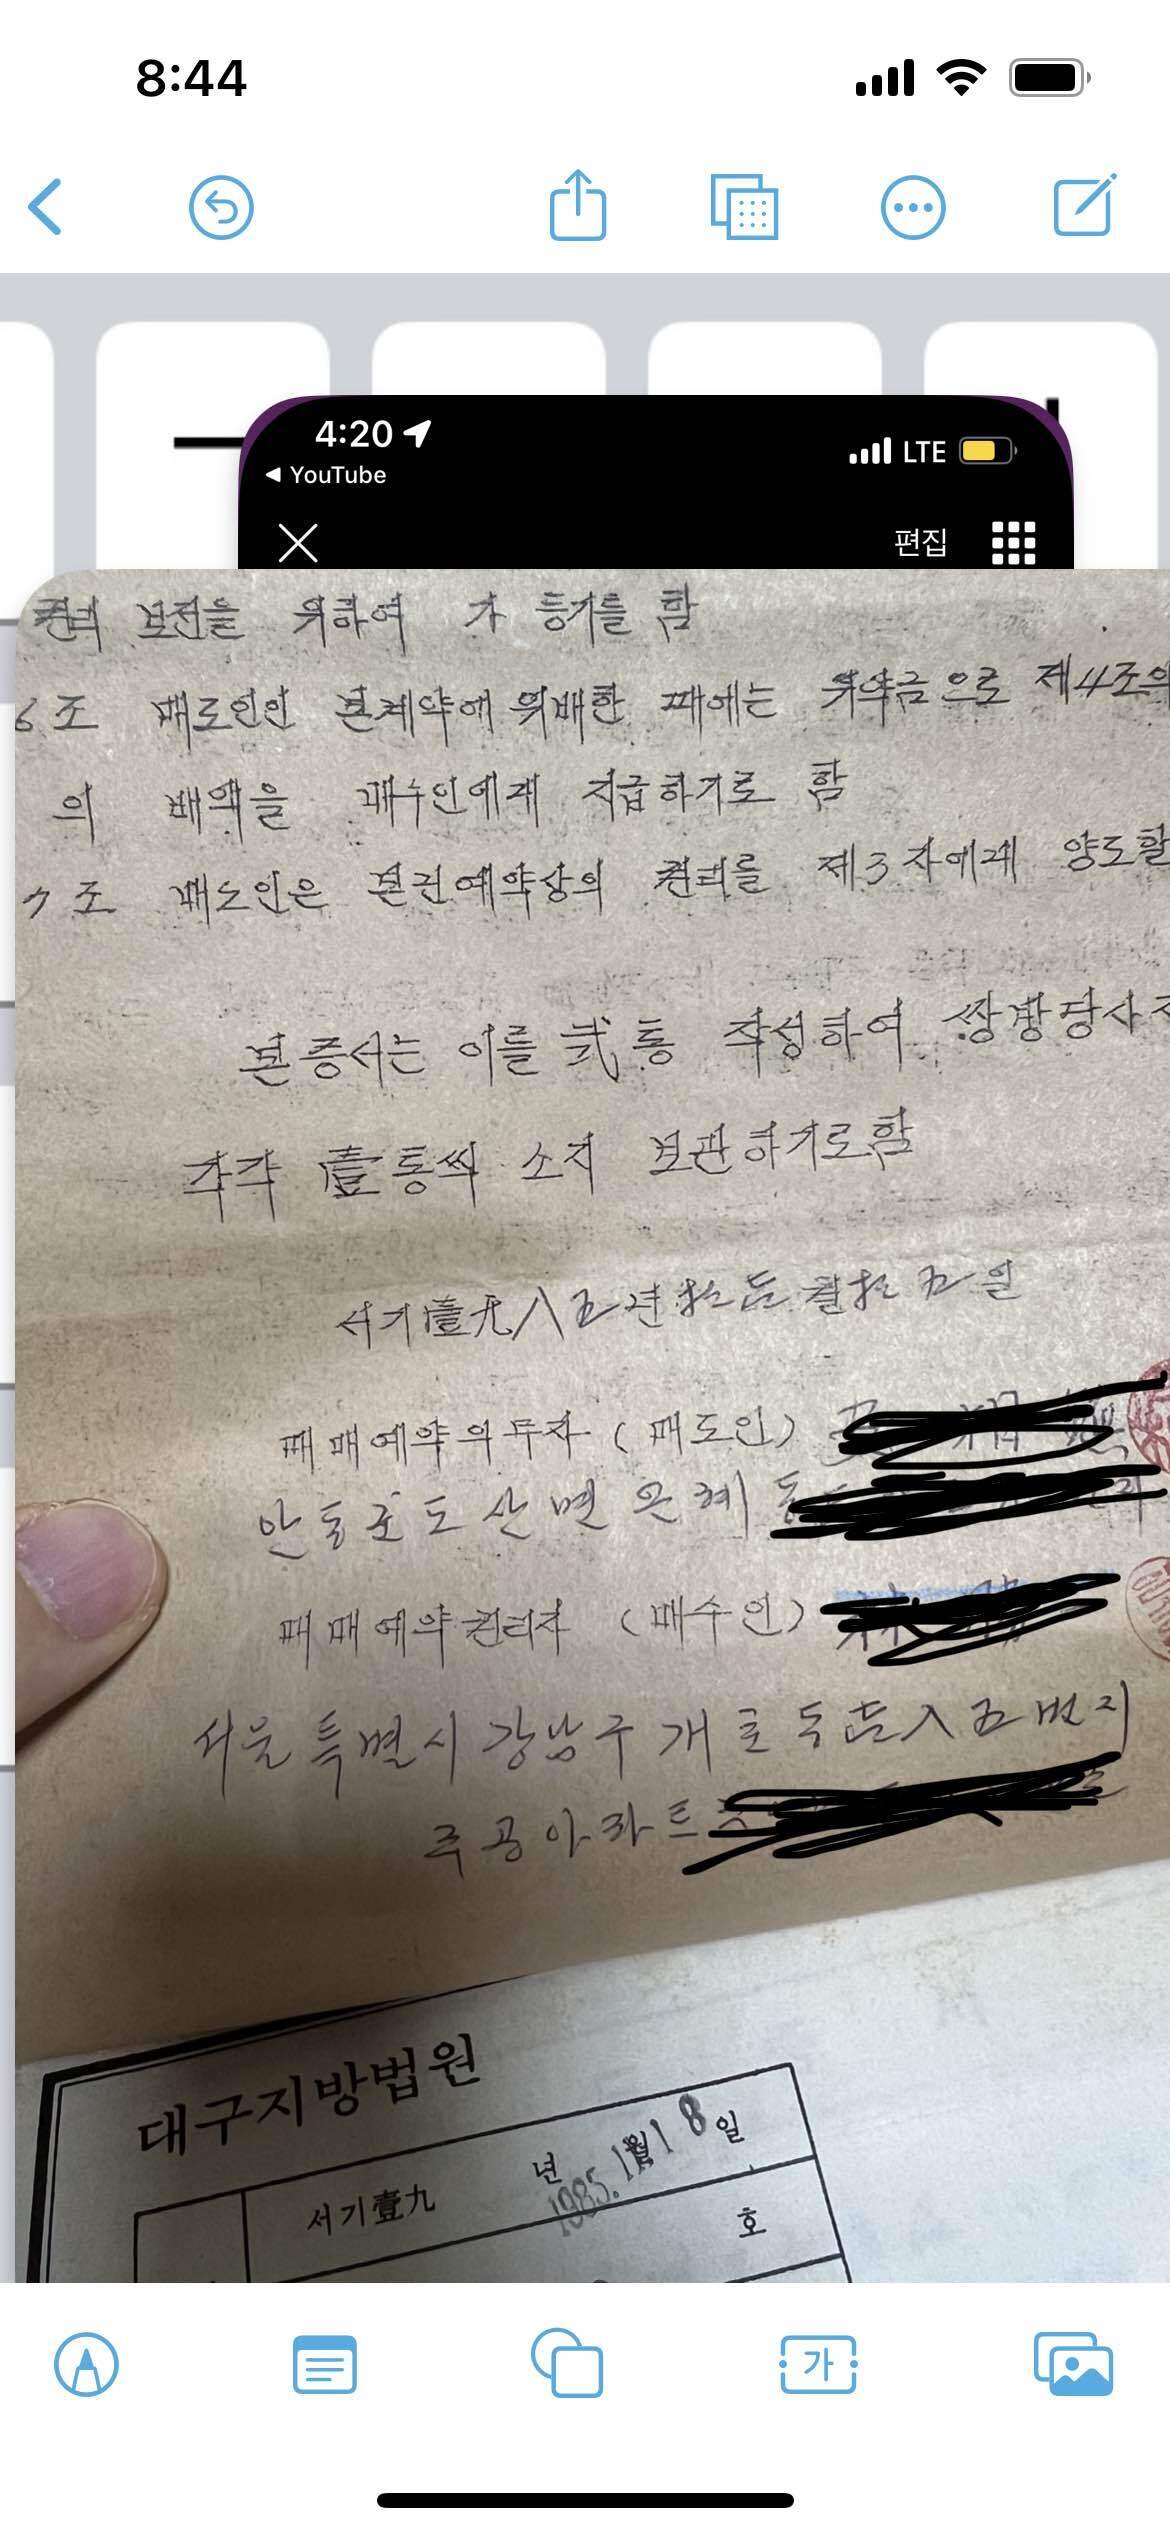 8:44
4:20
LTE
◀ YouTube
편집
권리 보전을 위하여 가 등기를 함
6조 매도인인 본계약에 위배한 때에는 위약금으로 제4조의
의 배액을 매수인에게 지급하기로 함
7조 매도인은 본건예약상의 권리를 제3자에게 양도할
본증서는 이를 弐통 작성하여 쌍방당사
각각 壹통씩 소지 보관하기로함
서기壹九八五년 월 五일
매매예약의무자 (매도인)
안동군도산면 은혜동
매매예약권리자 (매수인)
서울특별시강남구개포동 번지
주공아파트
대구지방법원
서기壹九 년 월 일
1985. 1 18
호
가